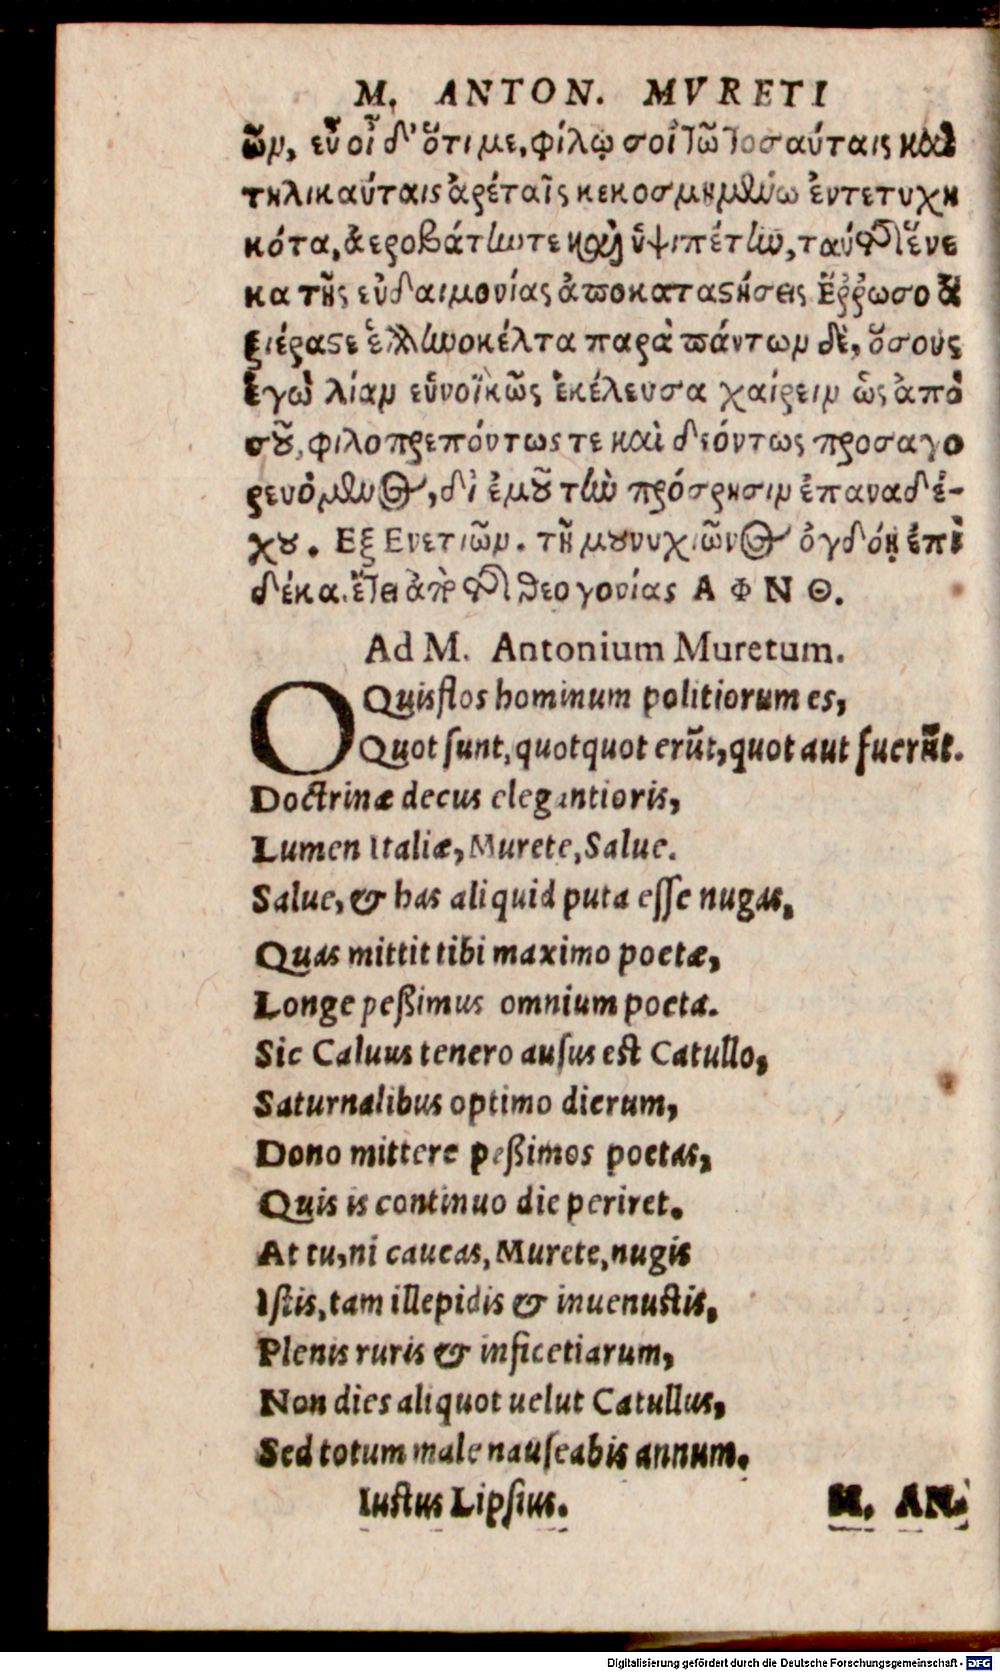 M. ANTON. MVRETI
ῶν, εὖ οἶδ' ὅτι με, φίλῳ σοὶ τῶ τοσαύταις καὶ
τηλικαύταις ἀρέταῖς κεκοσμημένω ἐντετυχη
κότα, ἀεροβάτην τε καὶ ὑψιπέτην, ταύτης ἕνε
κα τῆς εὐδαιμονίας ἀποκαταστήσεις Ἔῤῥωσο
ἐγὼ λίαν εὐνοϊκῶς ἐκέλευσα χαίρειν ὡς ἀπὸ
σοῦ, φιλοπρεπόντως τε καὶ δεόντως προσαγο
ρευόμενος, δἰ ἐμοῦ τὴν πρόσρησιν ἐπαναδέ-
χου. Εξ Ενετιῶν. τῆ μουνυχιῶνος ὀγδόῃ ἐπὶ
δέκα. ἔτει ἀπὸ τῆς θεογονίας Α Φ Ν Θ.
Ad M. Antonium Muretum.
O Quis flos hominum politiorum es,
Quot sunt, quotquot erūt, quot aut fuerūt.
Doctrinæ decus elegantioris,
Lumen Italiæ, Murete, Salue.
Salue, & has aliquid puta esse nugas,
Quas mittit tibi maximo poetæ,
Longe peßimus omnium poeta.
Sic Caluus tenero ausus est Catullo,
Saturnalibus optimo dierum,
Dono mittere peßimos poetas,
Quis is continuo die periret.
At tu, ni caueas, Murete, nugis
Istis, tam illepidis & inuenustis,
Plenis ruris & inficetiarum,
Non dies aliquot uelut Catullus,
Sed totum male nauseabis annum.
Iustus Lipsius.
M. AN.
Digitalisierung gefördert durch die Deutsche Forschungsgemeinschaft - DFG